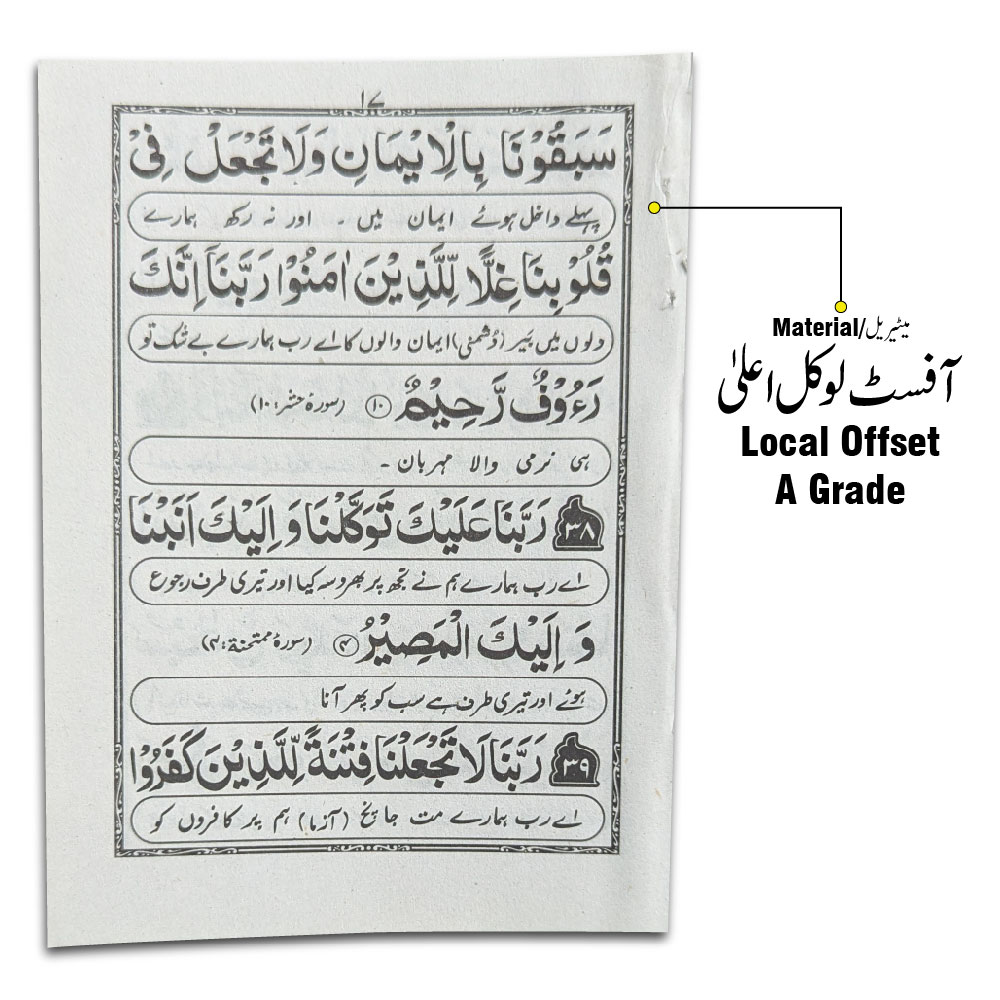 ١٧
سَبَقُوْنَا بِالْاِيْمَانِ وَلَا تَجْعَلْ فِیْ
پہلے داخل ہوئے ایمان میں ۔ اور نہ رکھ ہمارے
قُلُوْبِنَا غِلًّا لِّلَّذِيْنَ اٰمَنُوْا رَبَّنَاۤ اِنَّكَ
دلوں میں بَیر (دُشمنی) ایمان والوں کا اے رب ہمارے بے شک تو
رَءُوْفٌ رَّحِيْمٌ ﴿۱۰﴾ (سورۃ حشر: ۱۰)
ہی نرمی والا مہربان ۔
۳۸ رَبَّنَا عَلَيْكَ تَوَكَّلْنَا وَ اِلَيْكَ اَنَبْنَا
اے رب ہمارے ہم نے تجھ پر بھروسہ کیا اور تیری طرف رجوع
وَ اِلَيْكَ الْمَصِيْرُ ﴿۴﴾ (سورۃ ممتحنۃ: ۴)
ہوئے اور تیری طرف ہے سب کو پھر آنا
۳۹ رَبَّنَا لَا تَجْعَلْنَا فِتْنَةً لِّلَّذِيْنَ كَفَرُوْا
اے رب ہمارے مت جانچ (آزما) ہم پر کافروں کو
Material/میٹیریل
آفسٹ لوکل اعلیٰ
Local Offset
A Grade